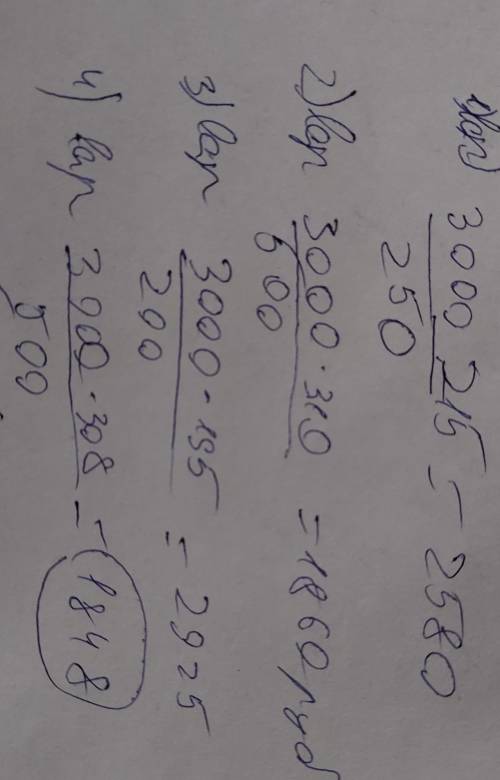 1) вар 3000 · 215 / 250 = 2580
2) вар 3000 · 310 / 500 = 1860 руб
3) вар 3000 · 195 / 200 = 2925
4) вар 3000 · 308 / 500 = 1848